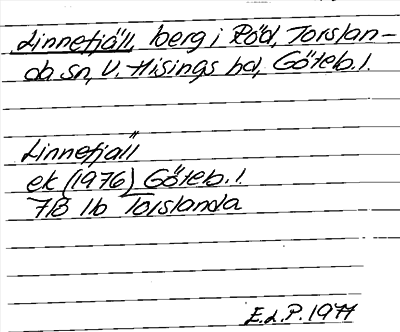 Linnefjäll, berg i Röd, Torslan-
da sn, V. Hisings hd, Göteb. l.
Linnefjäll
ek (1976) Göteb. l.
7B 1b Torslanda
E.L.P. 1977